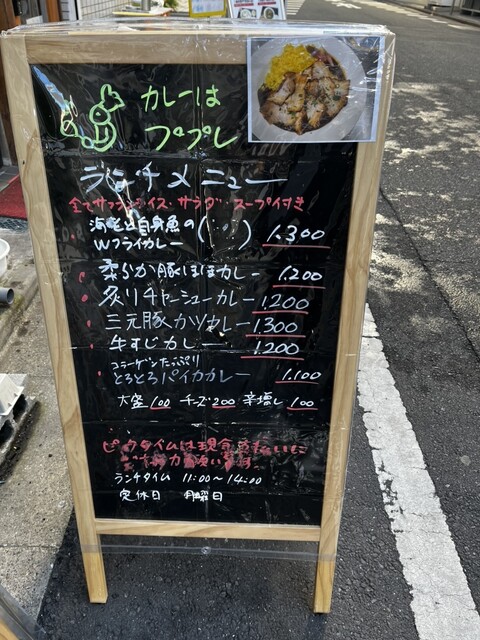 カレーは
ププレ
ランチメニュー
全てサフランライス・サラダ・スープ付き
海老と白身魚の
Wフライカレー (・・・) 1.300
柔らか豚ほほカレー 1.200
炙りチャーシューカレー 1200
三元豚カツカレー 1300
牛すじカレー 1.200
コラーゲンたっぷり
とろとろパイカカレー 1.100
大盛 100 チーズ 200 辛増し 100
ピークタイムは現金
ご協力願います
ランチタイム 11:00〜14:00
定休日 月曜日